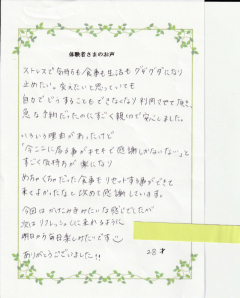 体験者さまのお声
ストレスで気持ちも食事も生活もグダグダになり
止めたい。変えたいと思っていても
自力でどうすることもできなくなり利用させて頂き、
急な予約だったのにすごく親切で安心しました。
いろいろ理由があったけど
「今ここに居る事がおそもで感謝しかないない」と
すごく気持ちが楽になり
めちゃくちゃだった食事もリセットする事ができて
来てよかったなと改めて感謝しています。
今回はかけこみみたいな感じでしたが
次はリフレッシュしに来れるように
明日から毎日楽しみたいです
ありがとうございました!!
28才